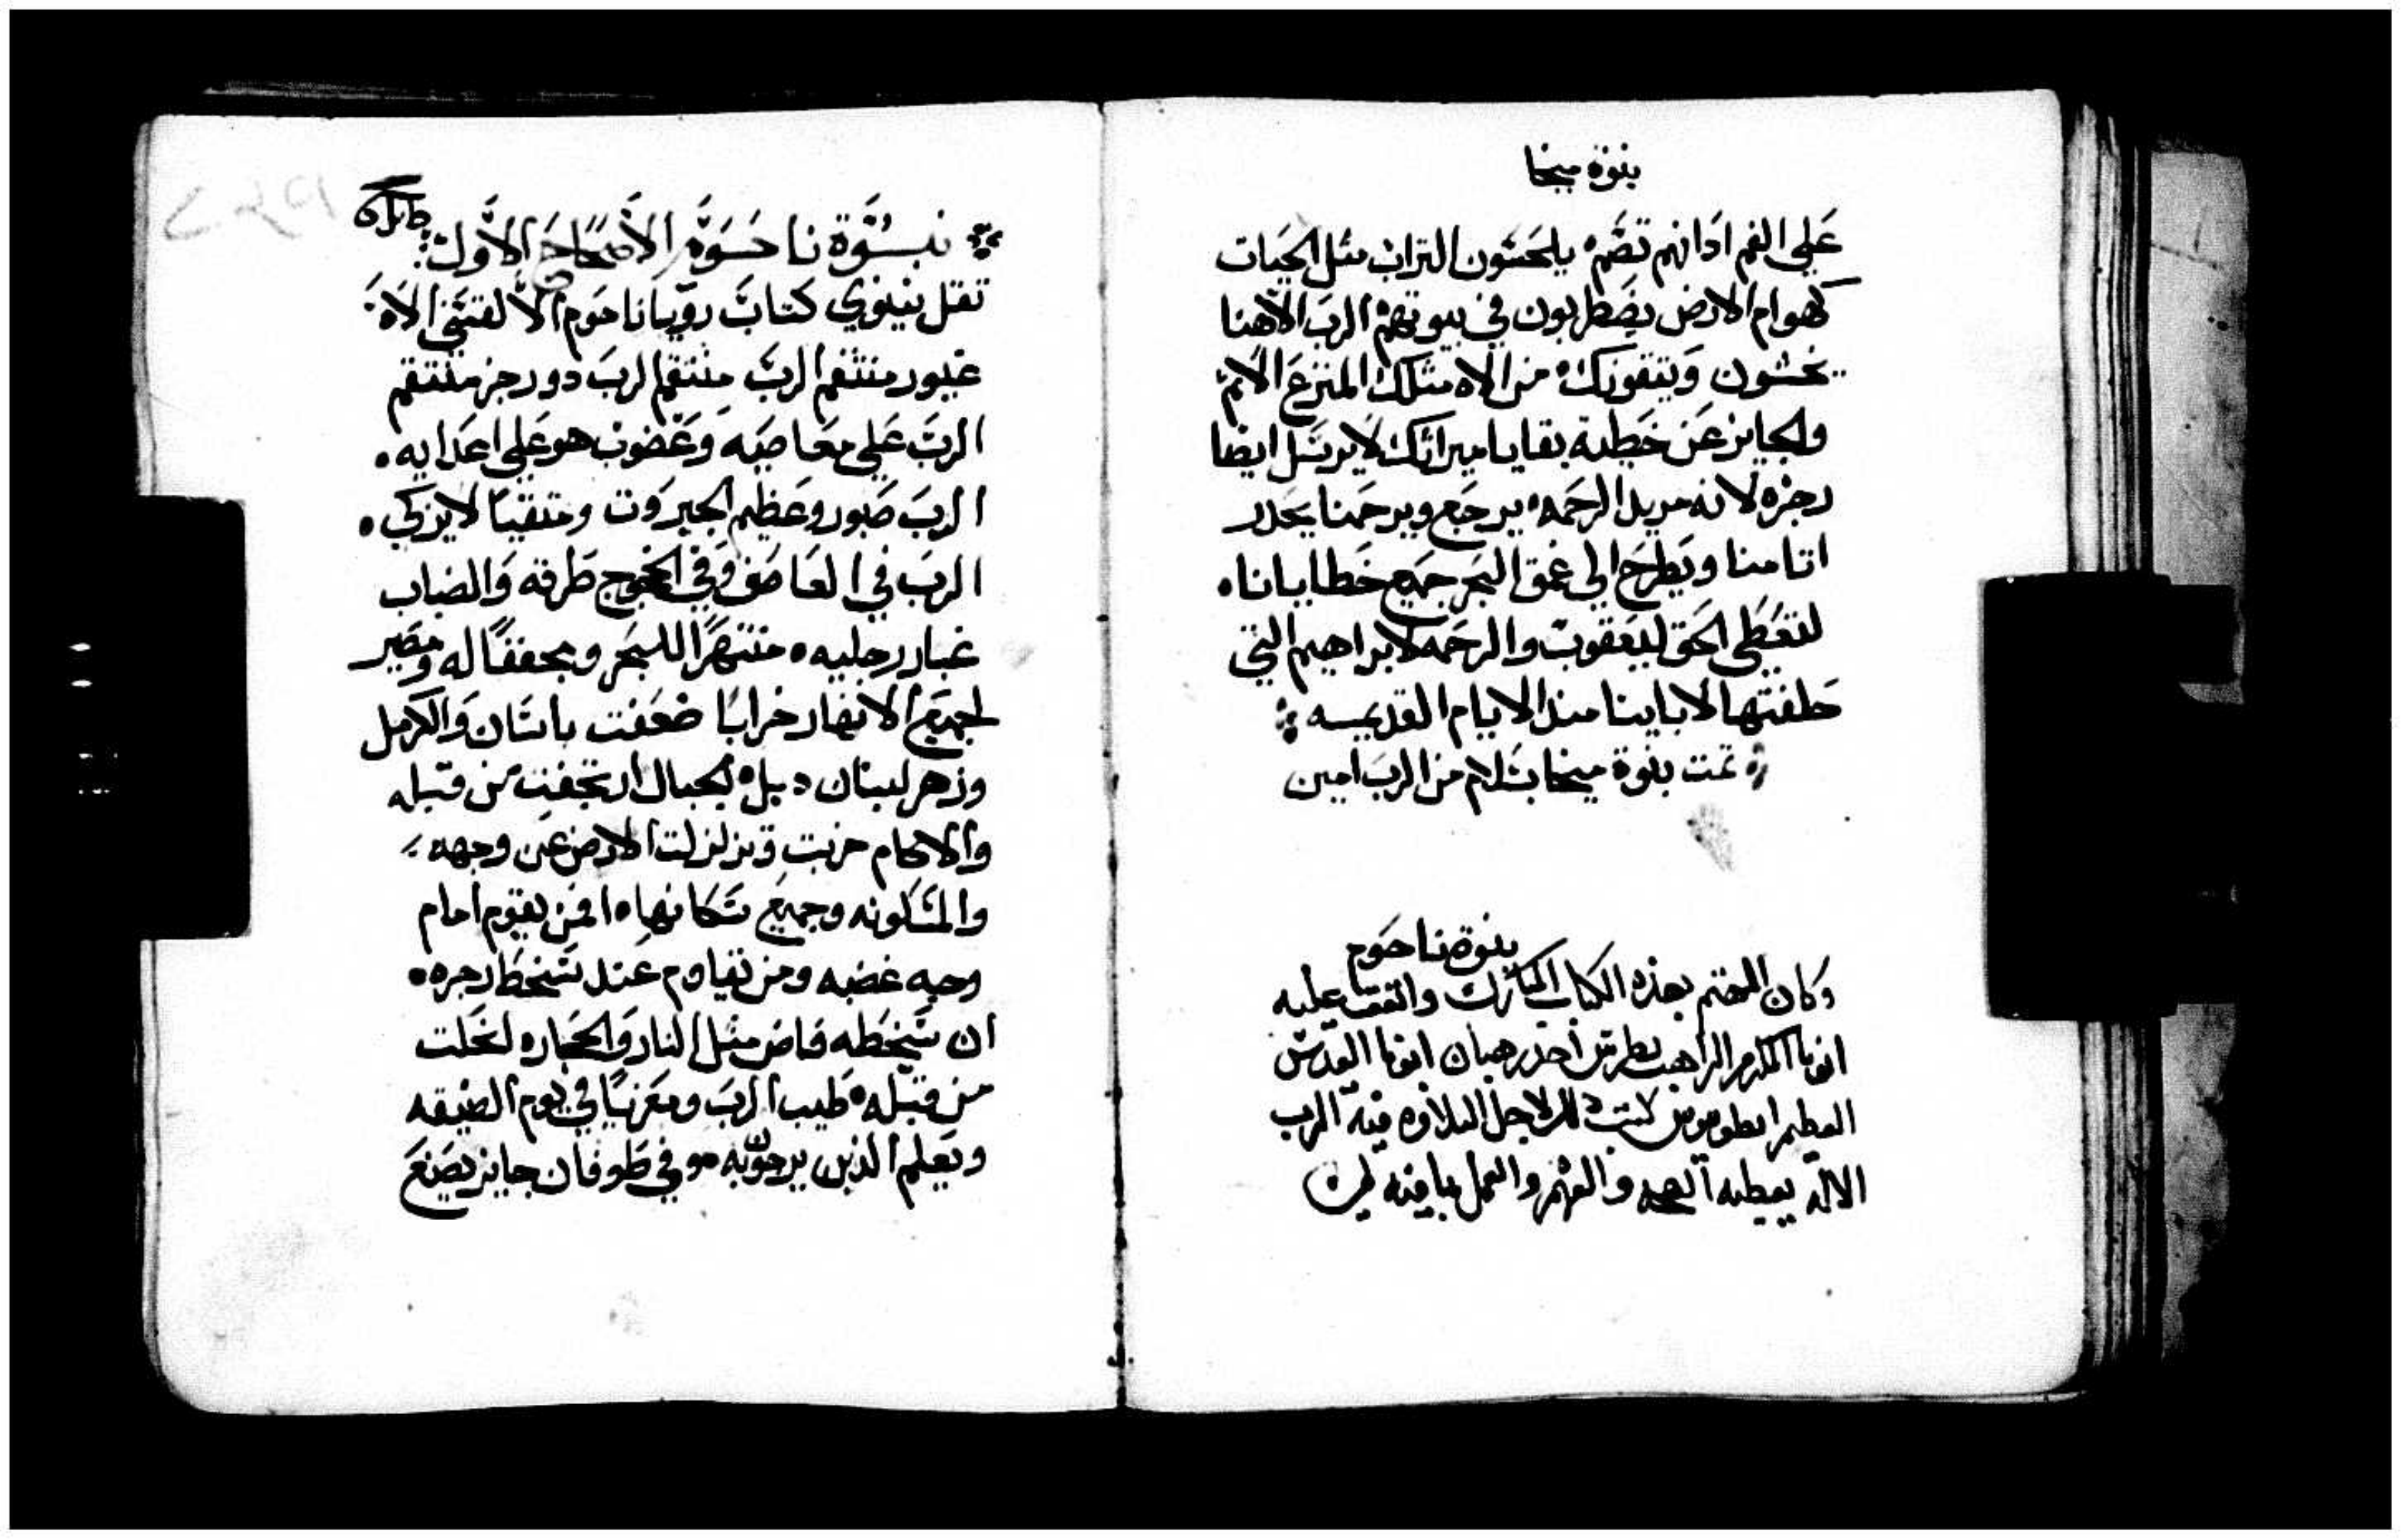 بنوة ميخا
على الفم اذانهم تصم، يلحسون التراب مثل الحيات
كهوام الارض يضطربون في بيوتهم الرب الاهنا
يخشون ويتقونك، من الاه مثلك المنزع الاثم
والجايز عن خطية بقايا ميراثك لا يرسل ايضا
رجزه لانه مريد الرحمه، يرجع ويرحمنا يحدر
اثامنا ويطرح الى عمق البحر جميع خطايانا،
لتعطي الحق ليعقوب والرحمه لابراهيم التي
حلفتها لاباينا منذ الايام القديمه
تمت بنوة ميخا بسلام من الرب امين
بنوة ناحوم
وكان المهتم بهذه الكتاب المبارك واتفقا عليه
ابونا المكرم الراهب بطرس احد رهبان ابونا القديس
العظيم انطونيوس كتب ذلك لاجل التلاوه فيه الرب
الاله يعطيه الصحه والفهم والعمل بما فيه امين
نبوة ناحوم الاصحاح الاول
تقل نينوي كتاب رويا ناحوم الالقتني الاه
غيور منتقم الرب منتقم الرب ذو رجز منتقم
الرب على معاصيه وغضوب هو على اعدايه،
الرب صبور وعظيم الجبروت ومتقيا لا يزكى،
الرب في العاصف وفي طرقه والضباب
غبار رجليه، منتهرا للبحر ومجففا له ومصير
لجميع الانهار خرابا ضعفت باسان والكرمل
وزهر لبنان دبل، الجبال ارتجفت من قبله
والاكام خربت وتزلزلت الارض عن وجهه
والمسكونه وجميع سكانها، افمن يقوم امام
وجه غضبه ومن يقاوم عند سخط رجزه،
ان سخطه فاض مثل النار والحجاره انحلت
من قبله، طيب الرب ومعزيا في يوم الضيقه
ويعلم الذين يرجونه، وفي طوفان جايز يصنع